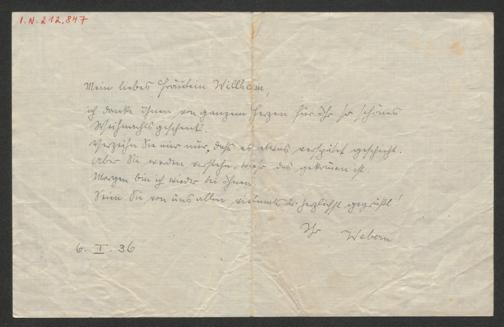 I.N. 212.847
Mein liebes Fräulein
ich danke Ihnen von ganzem Herzen für Ihr so schönes
Weihnachtsgeschenk.
Verzeihn Sie mir nur, dass es etwas verspätet geschieht.
Aber Sie werden verstehn, wie das gekommen ist
Morgen bin ich wieder bei Ihnen
Seien Sie von uns allen vielmals u. herzlichst gegrüßt!
Ihr Webern
6. I. 36